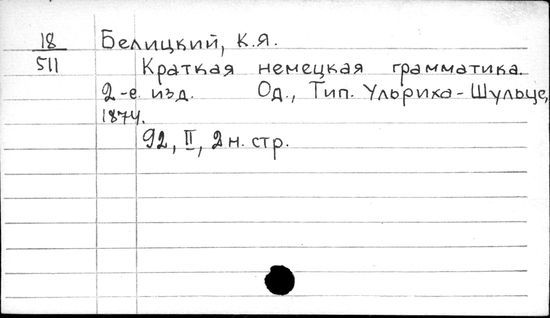 18 Белицкий, К.Я.
511 Краткая немецкая грамматика.
2-е изд. Од., Тип. Ульриха-Шульце,
1874.
92, II, 2 н. стр.